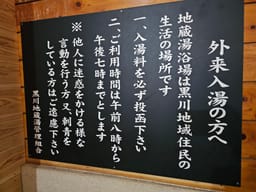 外来入湯の方へ
地蔵湯浴場は黒川地域住民の
生活の場所です
一、入湯料を必ず投函下さい
二、ご利用時間は午前八時から
午後七時までとします
※ 他人に迷惑をかける様な
言動を行う方 又、刺青を
している方はご遠慮下さい
黒川地蔵湯管理組合